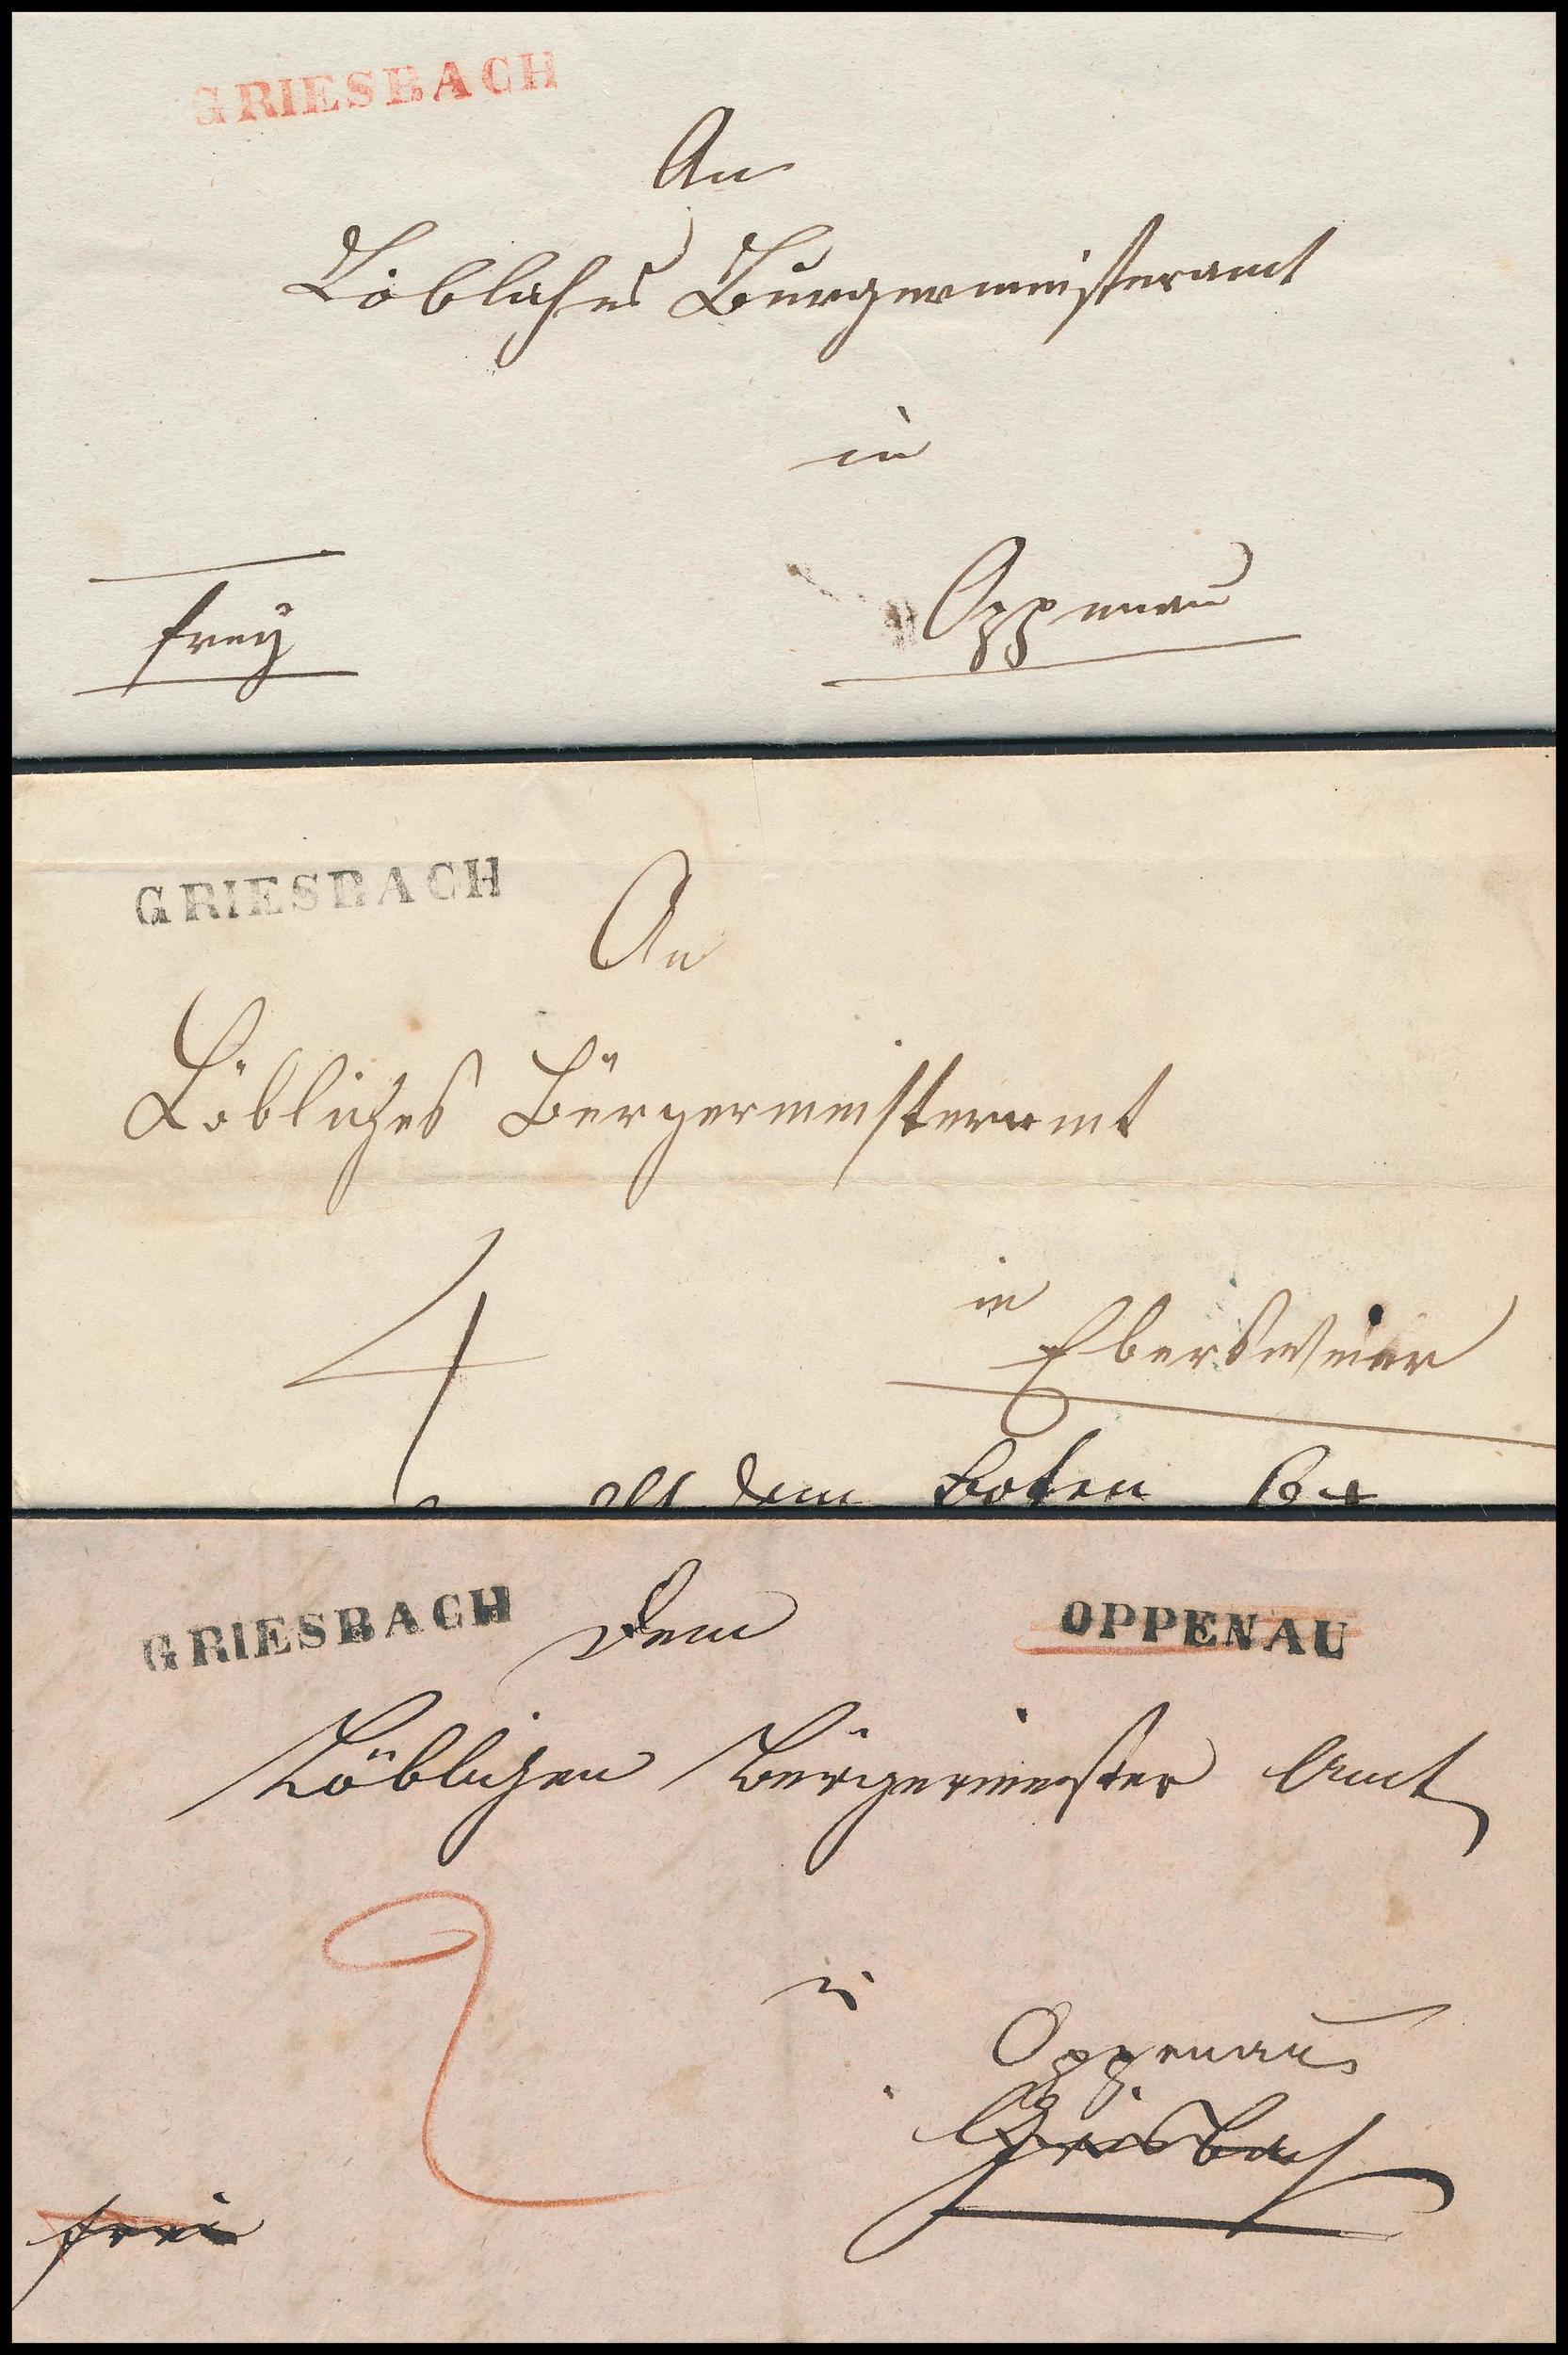 GRIESBACH
An
Löbliches Bürgermeisteramt
in
frey
Oppenau
GRIESBACH
An
Löbliches Bürgermeisteramt
4
in
Ebersweier
dem Boten
GRIESBACH
Dem
OPPENAU
Löblichen Bürgermeister Amt
2
in
Oppenau
Griesbach
frei